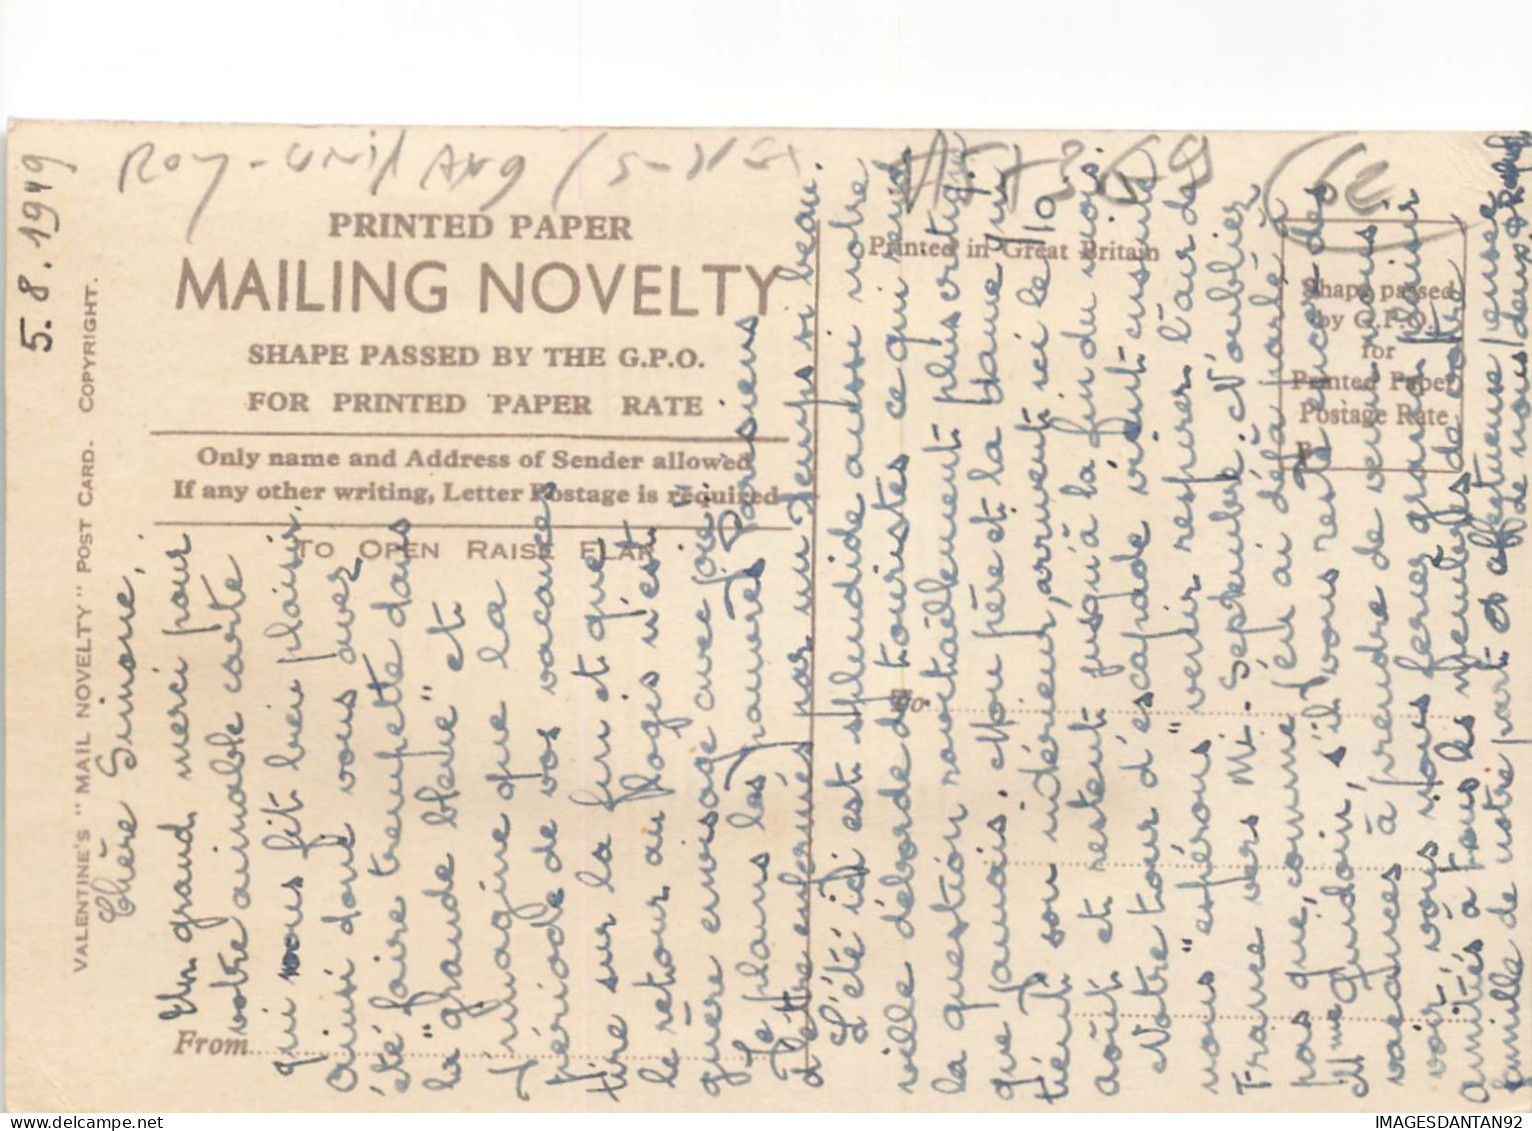 5.8.1949
Roy-Unil Ang
PRINTED PAPER
MAILING NOVELTY
SHAPE PASSED BY THE G.P.O.
FOR PRINTED PAPER RATE
Only name and Address of Sender allowed
If any other writing, Letter Postage is required
TO OPEN RAISE FLAP
From
VALENTINE'S "MAIL NOVELTY" POST CARD. COPYRIGHT.
Printed in Great Britain
Shape passed
by G.P.O.
for
Printed Paper
Postage Rate
To
Chère Simone,
Un grand merci pour
votre aimable carte
qui nous fit bien plaisir.
Ainsi donc vous avez
été faire trempette dans
la "grande bleue" et
j'imagine que la
période de vos vacances
tire sur la fin et que
le retour au logis n'est
guère envisagé avec joie!
Je plains les pauvres Parisiens
d'être enfermés par un temps si beau.
L'été ici est splendide aussi notre
ville déborde de touristes ce qui rend
la question ravitaillement plus critique
que jamais. Mon père et la dame qui
tient son intérieur, arrivent ici le 10
août et restent jusqu'à la fin du mois.
Notre tour d'escapade vient ensuite
nous "espérons" venir respirer l'air de
France vers Mi-Septembre. N'oubliez
pas que, comme j'en ai déjà parlé à
Mme Guidoin, s'il vous reste encore des
vacances à prendre de venir nous
voir vous nous feriez grand plaisir
amitiés à tous les membres de votre
famille de notre part & affectueuse pensée
de nous deux.
IMAGESDANTAN92